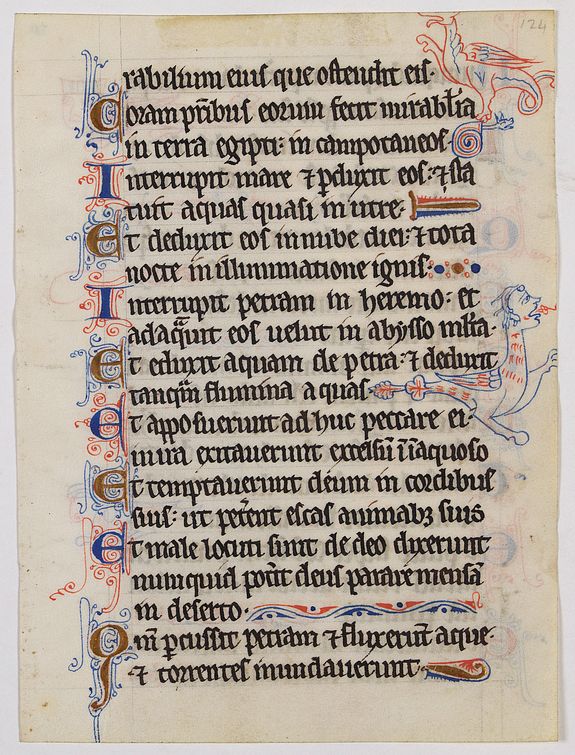 124
rabilium eius que ostendit eis·
Coram pr̄ibus eorum fecit mirab̄lia
in terra egipti: in campo taneos·
Interrupit mare ⁊ ꝑduxit eos: ⁊ sta
tuit aquas quasi in utre·
Et deduxit eos in nube diei: ⁊ tota
nocte in illuminatione ignis·
Interrupit petram in heremo: et
adaq̄uit eos uelut in abysso ml̄ta·
Et eduxit aquam de petra: ⁊ deduxit
tanq̄m flumina aquas·
Et apposuerunt ad huc peccare ei·
in ira excitauerunt excelsū ī īaquoso
Et temptauerunt deum in cordibus
suis: ut peterent escas animabꝫ suis
Et male locuti sunt de deo dixerunt
nunquid pot̄it deus parare mensā
in deserto·
Qm̄ ꝑcussit petram ⁊ fluxerūt aque·
⁊ torrentes inundauerunt·